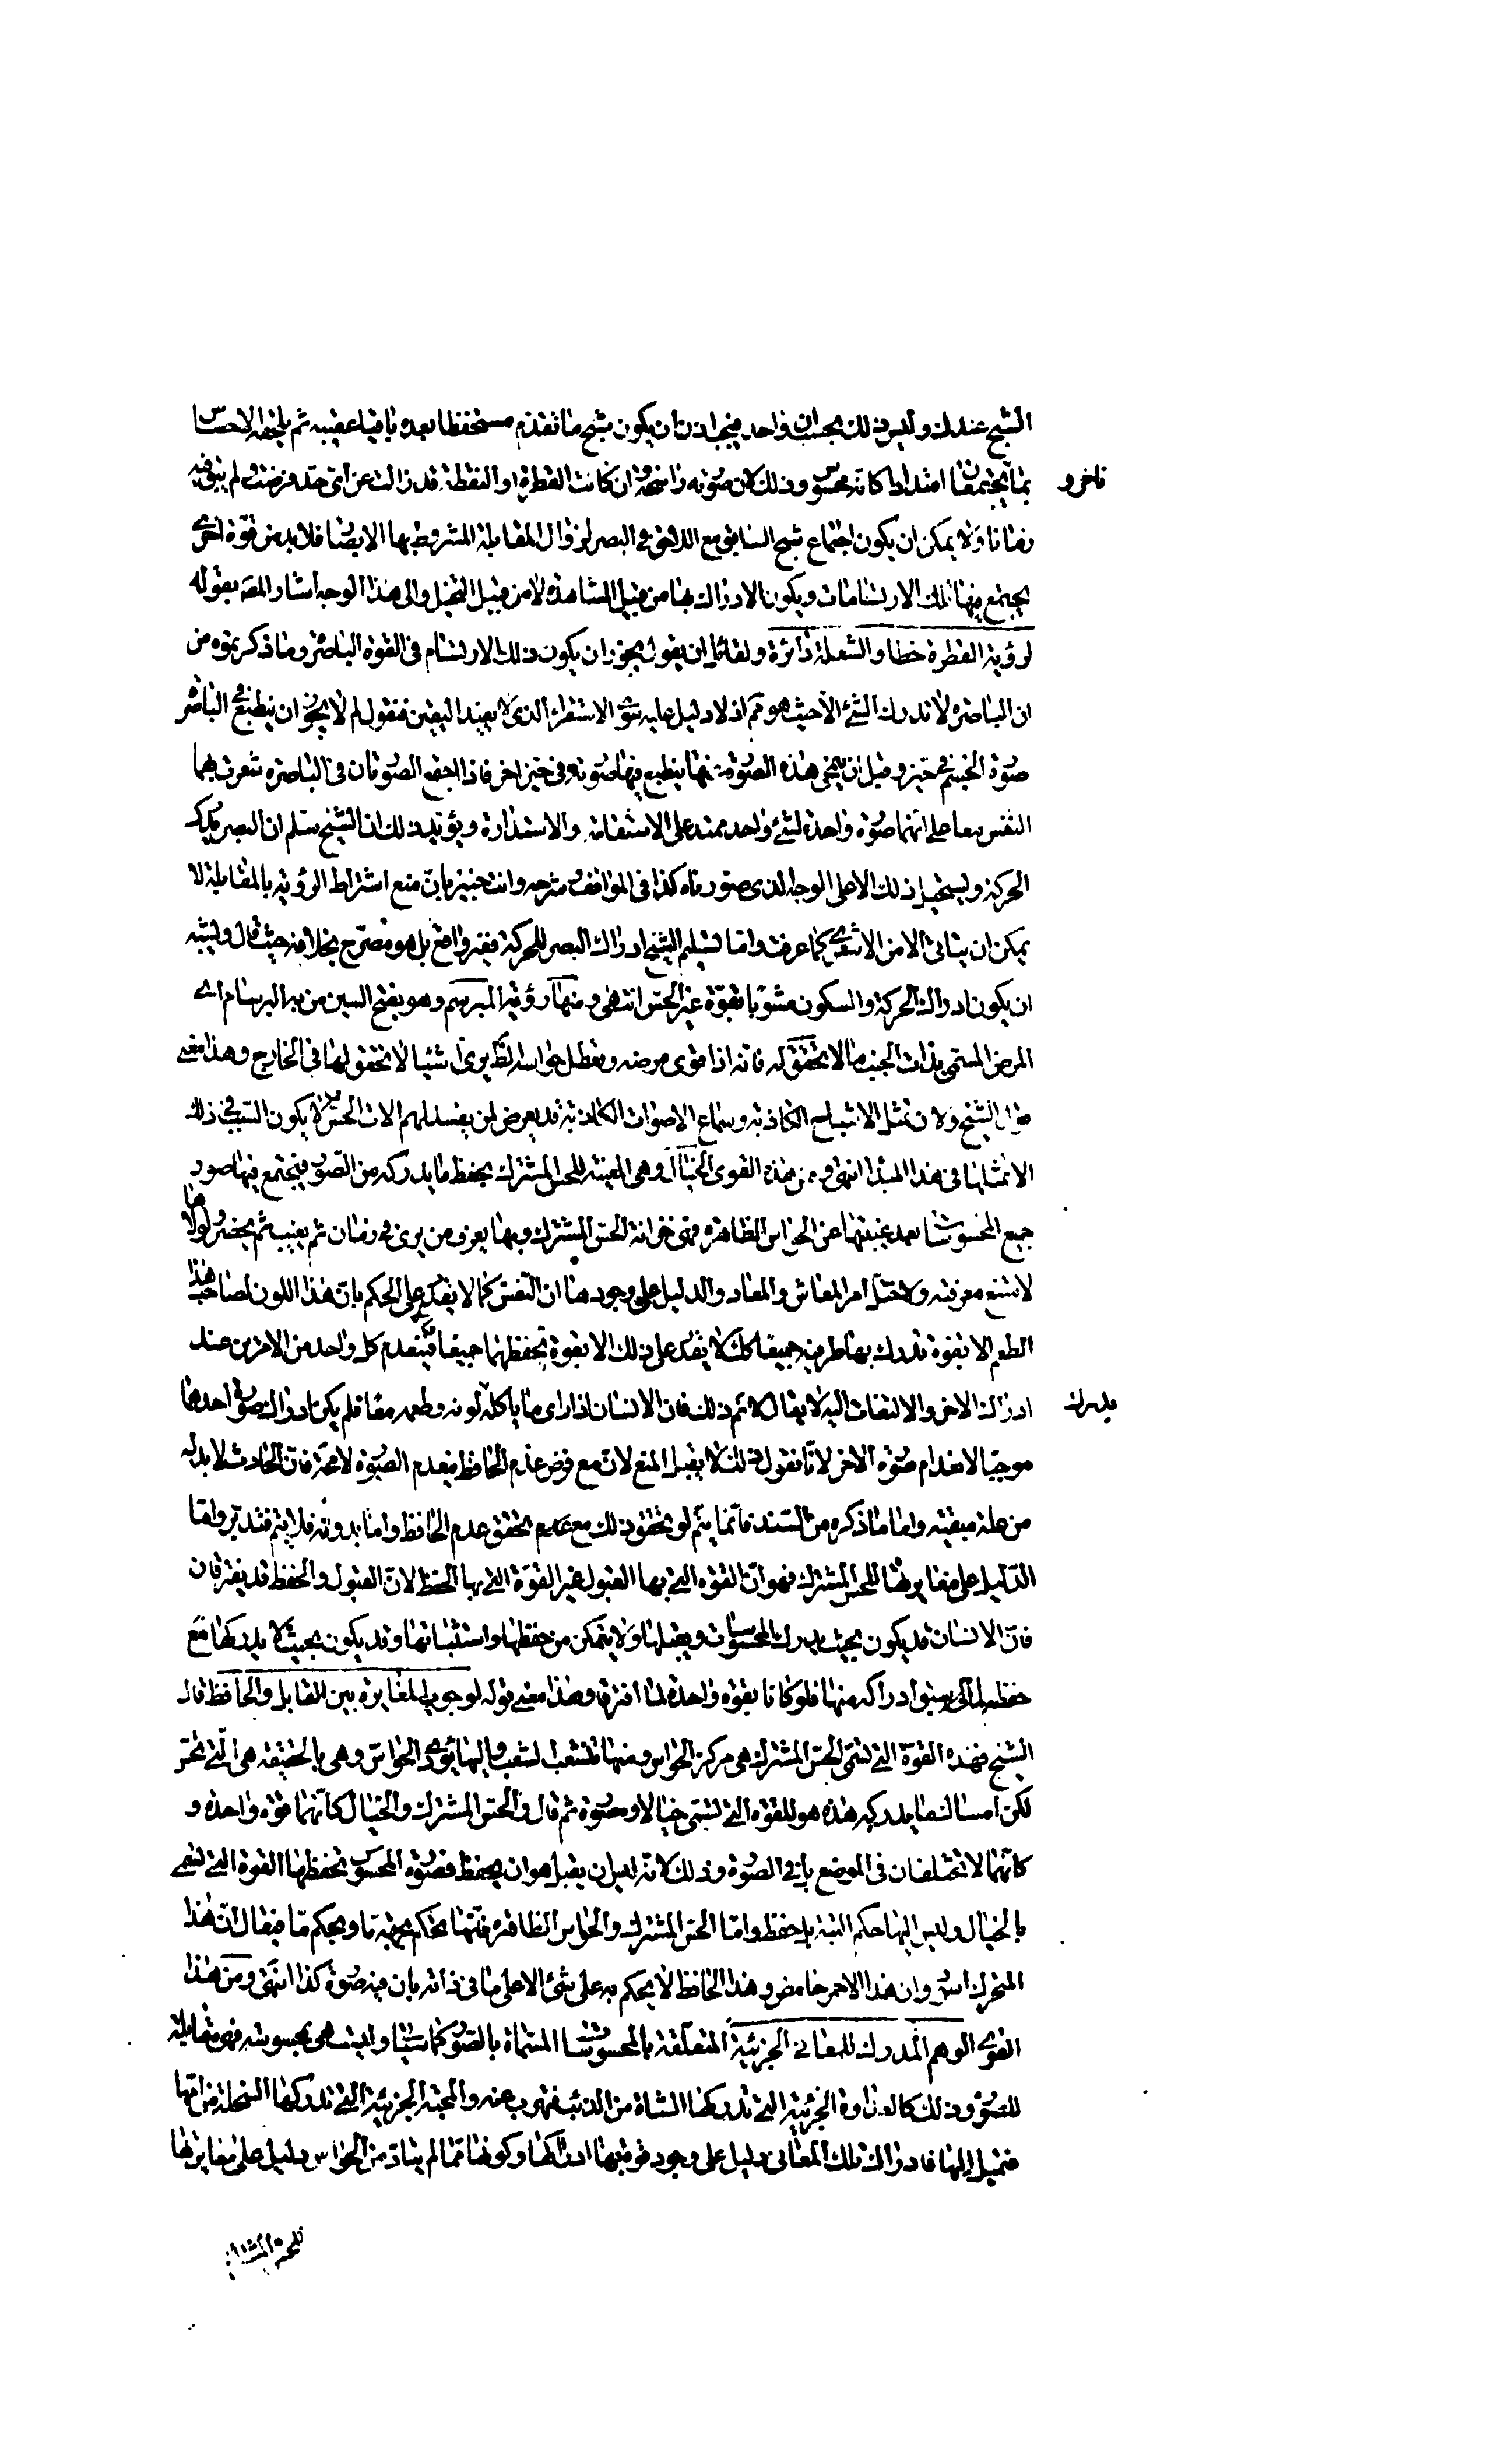 الشبح عندك وليس ذلك بحسبان واحد فيجب اذن ان يكون شبح ما تقدم مستحفظا بعده باقيا عقيبه ثم يلحقه الاحساس
بما تاخر ويجتمعان امتدادا كانه محسوس وذلك لان صورته راسخة وان كانت القطرة او النقطة قد زالت عن اى حد فرضت ولم تبق فيه
زمانا ولا يمكن ان يكون اجتماع شبح السابق مع اللاحق فى البصر لزوال المقابلة المشروط بها الابصار فلا بد من قوة اخرى
يجتمع فيها تلك الارتسامات ويكون الادراك بها من قبيل المشاهدة لا من قبيل التخيل والى هذا الوجه اشار المصـ بقوله
لرؤية القطرة خطا والشعلة دائرة ولقائل ان يقول يجوز ان يكون ذلك الارتسام فى القوة الباصرة وما ذكرتموه من
ان الباصرة لا تدرك الشئ الا حيث هو ثم اذ لا دليل عليه سوى الاستقراء الذى لا يفيد اليقين فنقول لم لا يجوز ان ينطبع فى الباصرة
صورة الجسم فى حيز وقبل ان يمحى هذه الصورة عنها ينطبع فيها صورته فى حيز اخر فاذا اجتمع الصورتان فى الباصرة شعرت بهما
النفس معا على انهما صورة واحدة لشئ واحد ممتد على الاستقامة والاستدارة ويؤيد ذلك ان الشيخ سلم ان البصر يدرك
الحركة ويستحيل ذلك الا على الوجه الذى صورناه كذا فى المواقف وشرحه وانت خبير بان منع اشتراط الرؤية بالمقابلة لا
يمكن ان يتاتى الا من الاشعرى كما عرفت واما تسليم الشيخ ادراك البصر للحركة فغير واقع بل هو مصرح بخلافه حيث قال ويشبه
ان يكون ادراك الحركة والسكون مشوبا بقوة غير الحس انتهى ومنها رؤية المبرسم وهو بفتح السين من به البرسام اى
المرض المسمى بذات الجنب ما لا تحقق له فانه اذا قوى مرضه وتعطل حواسه الظـ يرى اشياء لا تحقق لها فى الخارج وهذا معنى
قول الشيخ ولان تمثل الاشباح الكاذبة وسماع الاصوات الكاذبة قد يعرض لمن يفسد لهم الات الحس فلا يكون السبب فى ذلك
الا تمثلها فى هذا المبدا انتهى ومن هذه القوى الخيال وهى المعينة للحس المشترك بحفظ ما يدركه من الصور فيجتمع فيها صور
جميع المحسوسات بعد غيبتها عن الحواس الظاهرة فهى خزانة الحس المشترك وبها يعرف من يرى فى زمان ثم يغيب ثم يحضر ولولاها
لامتنع معرفته ولاختل امر المعاش والمعاد والدليل على وجودها ان النفس كما لا يقدر على الحكم بان هذا اللون لصاحب هذا
الطعم الا بقوة تدرك بها طرفيه جميعا كك لا يقدر على ذلك الا بقوة تحفظهما جميعا فينعدم كل واحد من الامرين عند
ادراك الاخر والالتفات اليه لا يقال لا ثم ذلك فان الانسان اذا راى ما ياكله يدرك لونه وطعمه معا فلم يكن ادراك صورة احدهما
موجبا لانعدام صورة الاخر لانا نقول ذلك لا يقبل المنع لان مع فرض عدم الحافظ ينعدم الصورة لا محة فان الحادث لا بد له
من علة مبقية واما ما ذكره من السند فانما يتم لو تحقق ذلك مع عدم تحقق عدم الحافظ واما بدونه فلا يتم فتدبر واما
الدليل على مغايرتها للحس المشترك فهو ان القوة التى بها القبول غير القوة التى بها الحفظ لان القبول والحفظ قد يفترقان
فان الانسان قد يكون بحيث يدرك المحسوسات ويقبلها ولا يتمكن من حفظها واستثباتها وقد يكون بحيث لا يدركها مع
حفظه لما سبق ادراكه منها فلو كانا بقوة واحدة لما افترقا وهذا معنى قوله لوجوب المغايرة بين القابل والحافظ قال
الشيخ فهذه القوة التى تسمى الحس المشترك هى مركز الحواس ومنها تتشعب الشعب واليها يؤدى الحواس وهى بالحقيقة هى التى تحس
لكن امساك ما يدركه هذه هو للقوة التى تسمى خيالا ومصورة ثم قال والحس المشترك والخيال كانهما قوة واحدة و
كانهما لا تختلفان فى الموضع بل فى الصورة وذلك لانه ليس ان يقبل هو ان يحفظ فصورة المحسوس تحفظها القوة التى تسمى
بالخيال وليس اليها حكم البتة بل حفظ واما الحس المشترك والحواس الظاهرة فانها تحكم بجهة ما وبحكم ما فيقال ان هذا
المتحرك اسود وان هذا الاحمر حامض وهذا الحافظ لا يحكم به على شئ الا على ما فى ذاته بان فيه صورة كذا انتهى ومن هذا
القوى الوهم المدرك للمعانى الجزئية المتعلقة بالمحسوسات المسماة بالصور كما سبق وليست هى بمحسوسة فهى مقابلة
للصور وذلك كالعداوة الجزئية التى تدركها الشاة من الذئب فتهرب عنه والمحبة الجزئية التى تدركها السخلة من امها
فتميل اليها فادراك تلك المعانى دليل على وجود قوة بها ادراكها وكونها مما لم يتاد من الحواس دليل على مغايرتها
للحس المشترك